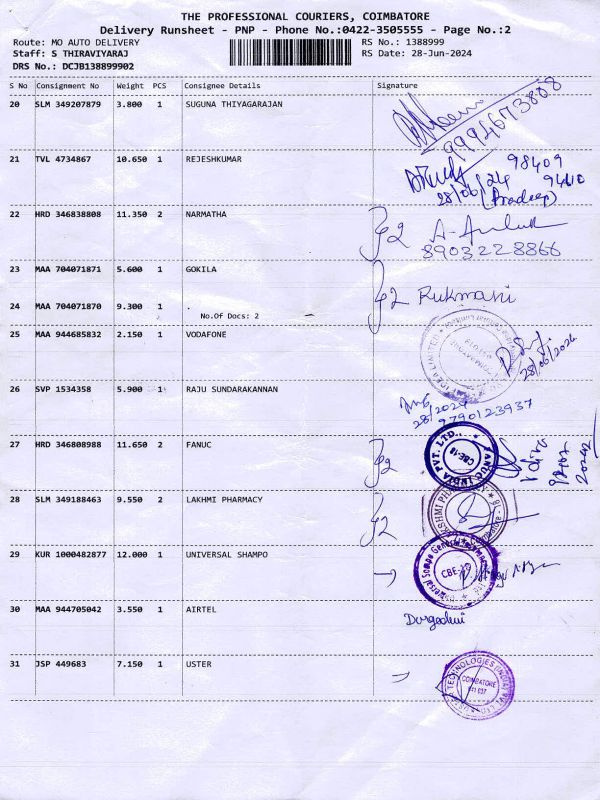 THE PROFESSIONAL COURIERS, COIMBATORE
Delivery Runsheet - PNP - Phone No.:0422-3505555 - Page No.:2
Route: MO AUTO DELIVERY RS No.: 1388999
Staff: S THIRAVIYARAJ RS Date: 28-Jun-2024
DRS No.: DCJB138899902
S No Consignment No Weight PCS Consignee Details Signature
20 SLM 349207879 3.800 1 SUGUNA THIYAGARAJAN
9994673808
21 TVL 4734867 10.650 1 REJESHKUMAR
98409
28/06/24 9440
(Pradeep)
22 HRD 346838808 11.350 2 NARMATHA
8903228866
23 MAA 704071871 5.600 1 GOKILA
Rukmani
24 MAA 704071870 9.300 1 .
No.Of Docs: 2
25 MAA 944685832 2.150 1 VODAFONE
28/06/2024
26 SVP 1534358 5.900 1 RAJU SUNDARAKANNAN
28/2024
9790123937
27 HRD 346808988 11.650 2 FANUC
FANUC INDIA PVT. LTD.,
CBE-18
28 SLM 349188463 9.550 2 LAKHMI PHARMACY
29 KUR 1000482877 12.000 1 UNIVERSAL SHAMPO
Universal Sompo General
CBE-18
30 MAA 944705042 3.550 1 AIRTEL
31 JSP 449683 7.150 1 USTER
TECHNOLOGIES (INDIA)
COIMBATORE